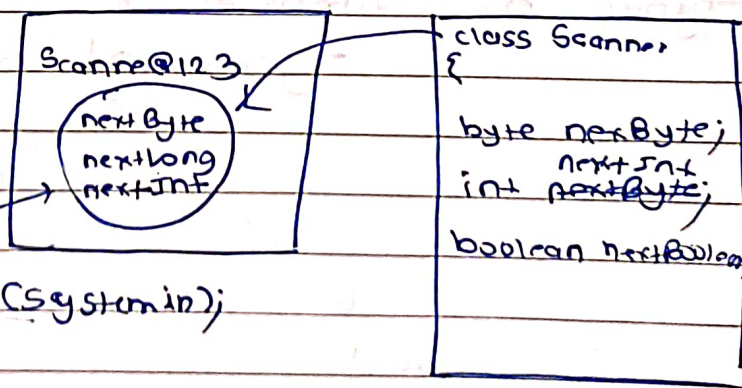 Scanne@123
nextByte
nextLong
nextInt
(System in);
class Scanner
{
byte nexByte;
nextInt
int nextByte;
boolean nextBoolean